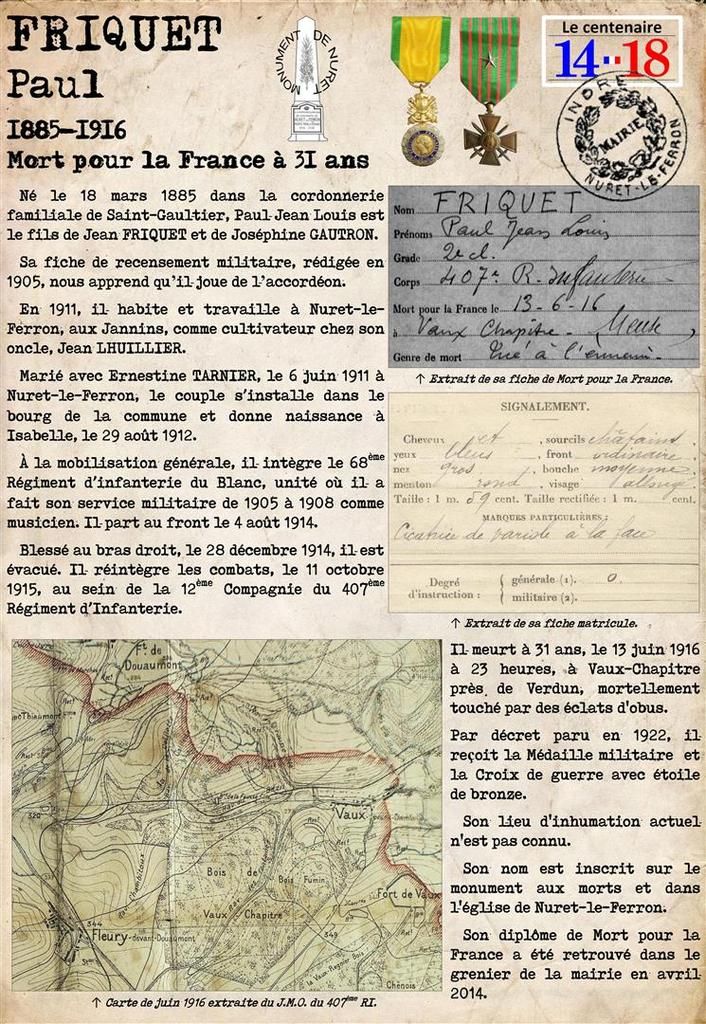 FRIQUET
Paul
1885-1916
Mort pour la France à 31 ans
MONUMENT DE NURET
Le centenaire
14··18
INDRE
MAIRIE
NURET-LE-FERRON
Né le 18 mars 1885 dans la cordonnerie
familiale de Saint-Gaultier, Paul Jean Louis est
le fils de Jean FRIQUET et de Joséphine GAUTRON.
Sa fiche de recensement militaire, rédigée en
1905, nous apprend qu'il joue de l'accordéon.
En 1911, il habite et travaille à Nuret-le-
Ferron, aux Jannins, comme cultivateur chez son
oncle, Jean LHUILLIER.
Marié avec Ernestine TARNIER, le 6 juin 1911 à
Nuret-le-Ferron, le couple s'installe dans le
bourg de la commune et donne naissance à
Isabelle, le 29 août 1912.
À la mobilisation générale, il intègre le 68ème
Régiment d'infanterie du Blanc, unité où il a
fait son service militaire de 1905 à 1908 comme
musicien. Il part au front le 4 août 1914.
Blessé au bras droit, le 28 décembre 1914, il est
évacué. Il réintègre les combats, le 11 octobre
1915, au sein de la 12ème Compagnie du 407ème
Régiment d'Infanterie.
Nom FRIQUET
Prénoms Paul Jean Louis
Grade 2e cl.
Corps 407e R. Infanterie
Mort pour la France le 13-6-16
à Vaux Chapitre - Meuse
Genre de mort Tué à l'ennemi
↑ Extrait de sa fiche de Mort pour la France.
SIGNALEMENT.
Cheveux et, sourcils châtains,
yeux bleus, front ordinaire,
nez gros, bouche moyenne,
menton rond, visage allongé
Taille : 1 m. 59 cent. Taille rectifiée : 1 m. cent.
MARQUES PARTICULIÈRES :
Cicatrice de variole à la face
Degré d'instruction : { générale (1). 0.
militaire (2).
↑ Extrait de sa fiche matricule.
Ft. de
Douaumont
Thiaumont
320
Vaux
Bois de
Vaux Chapitre
Bois Fumin
Fort de Vaux
344
Fleury-devant-Douaumont
349
Chénois
↑ Carte de juin 1916 extraite du J.M.O. du 407ème RI.
Il meurt à 31 ans, le 13 juin 1916
à 23 heures, à Vaux-Chapitre
près de Verdun, mortellement
touché par des éclats d'obus.
Par décret paru en 1922, il
reçoit la Médaille militaire et
la Croix de guerre avec étoile
de bronze.
Son lieu d'inhumation actuel
n'est pas connu.
Son nom est inscrit sur le
monument aux morts et dans
l'église de Nuret-le-Ferron.
Son diplôme de Mort pour la
France a été retrouvé dans le
grenier de la mairie en avril
2014.